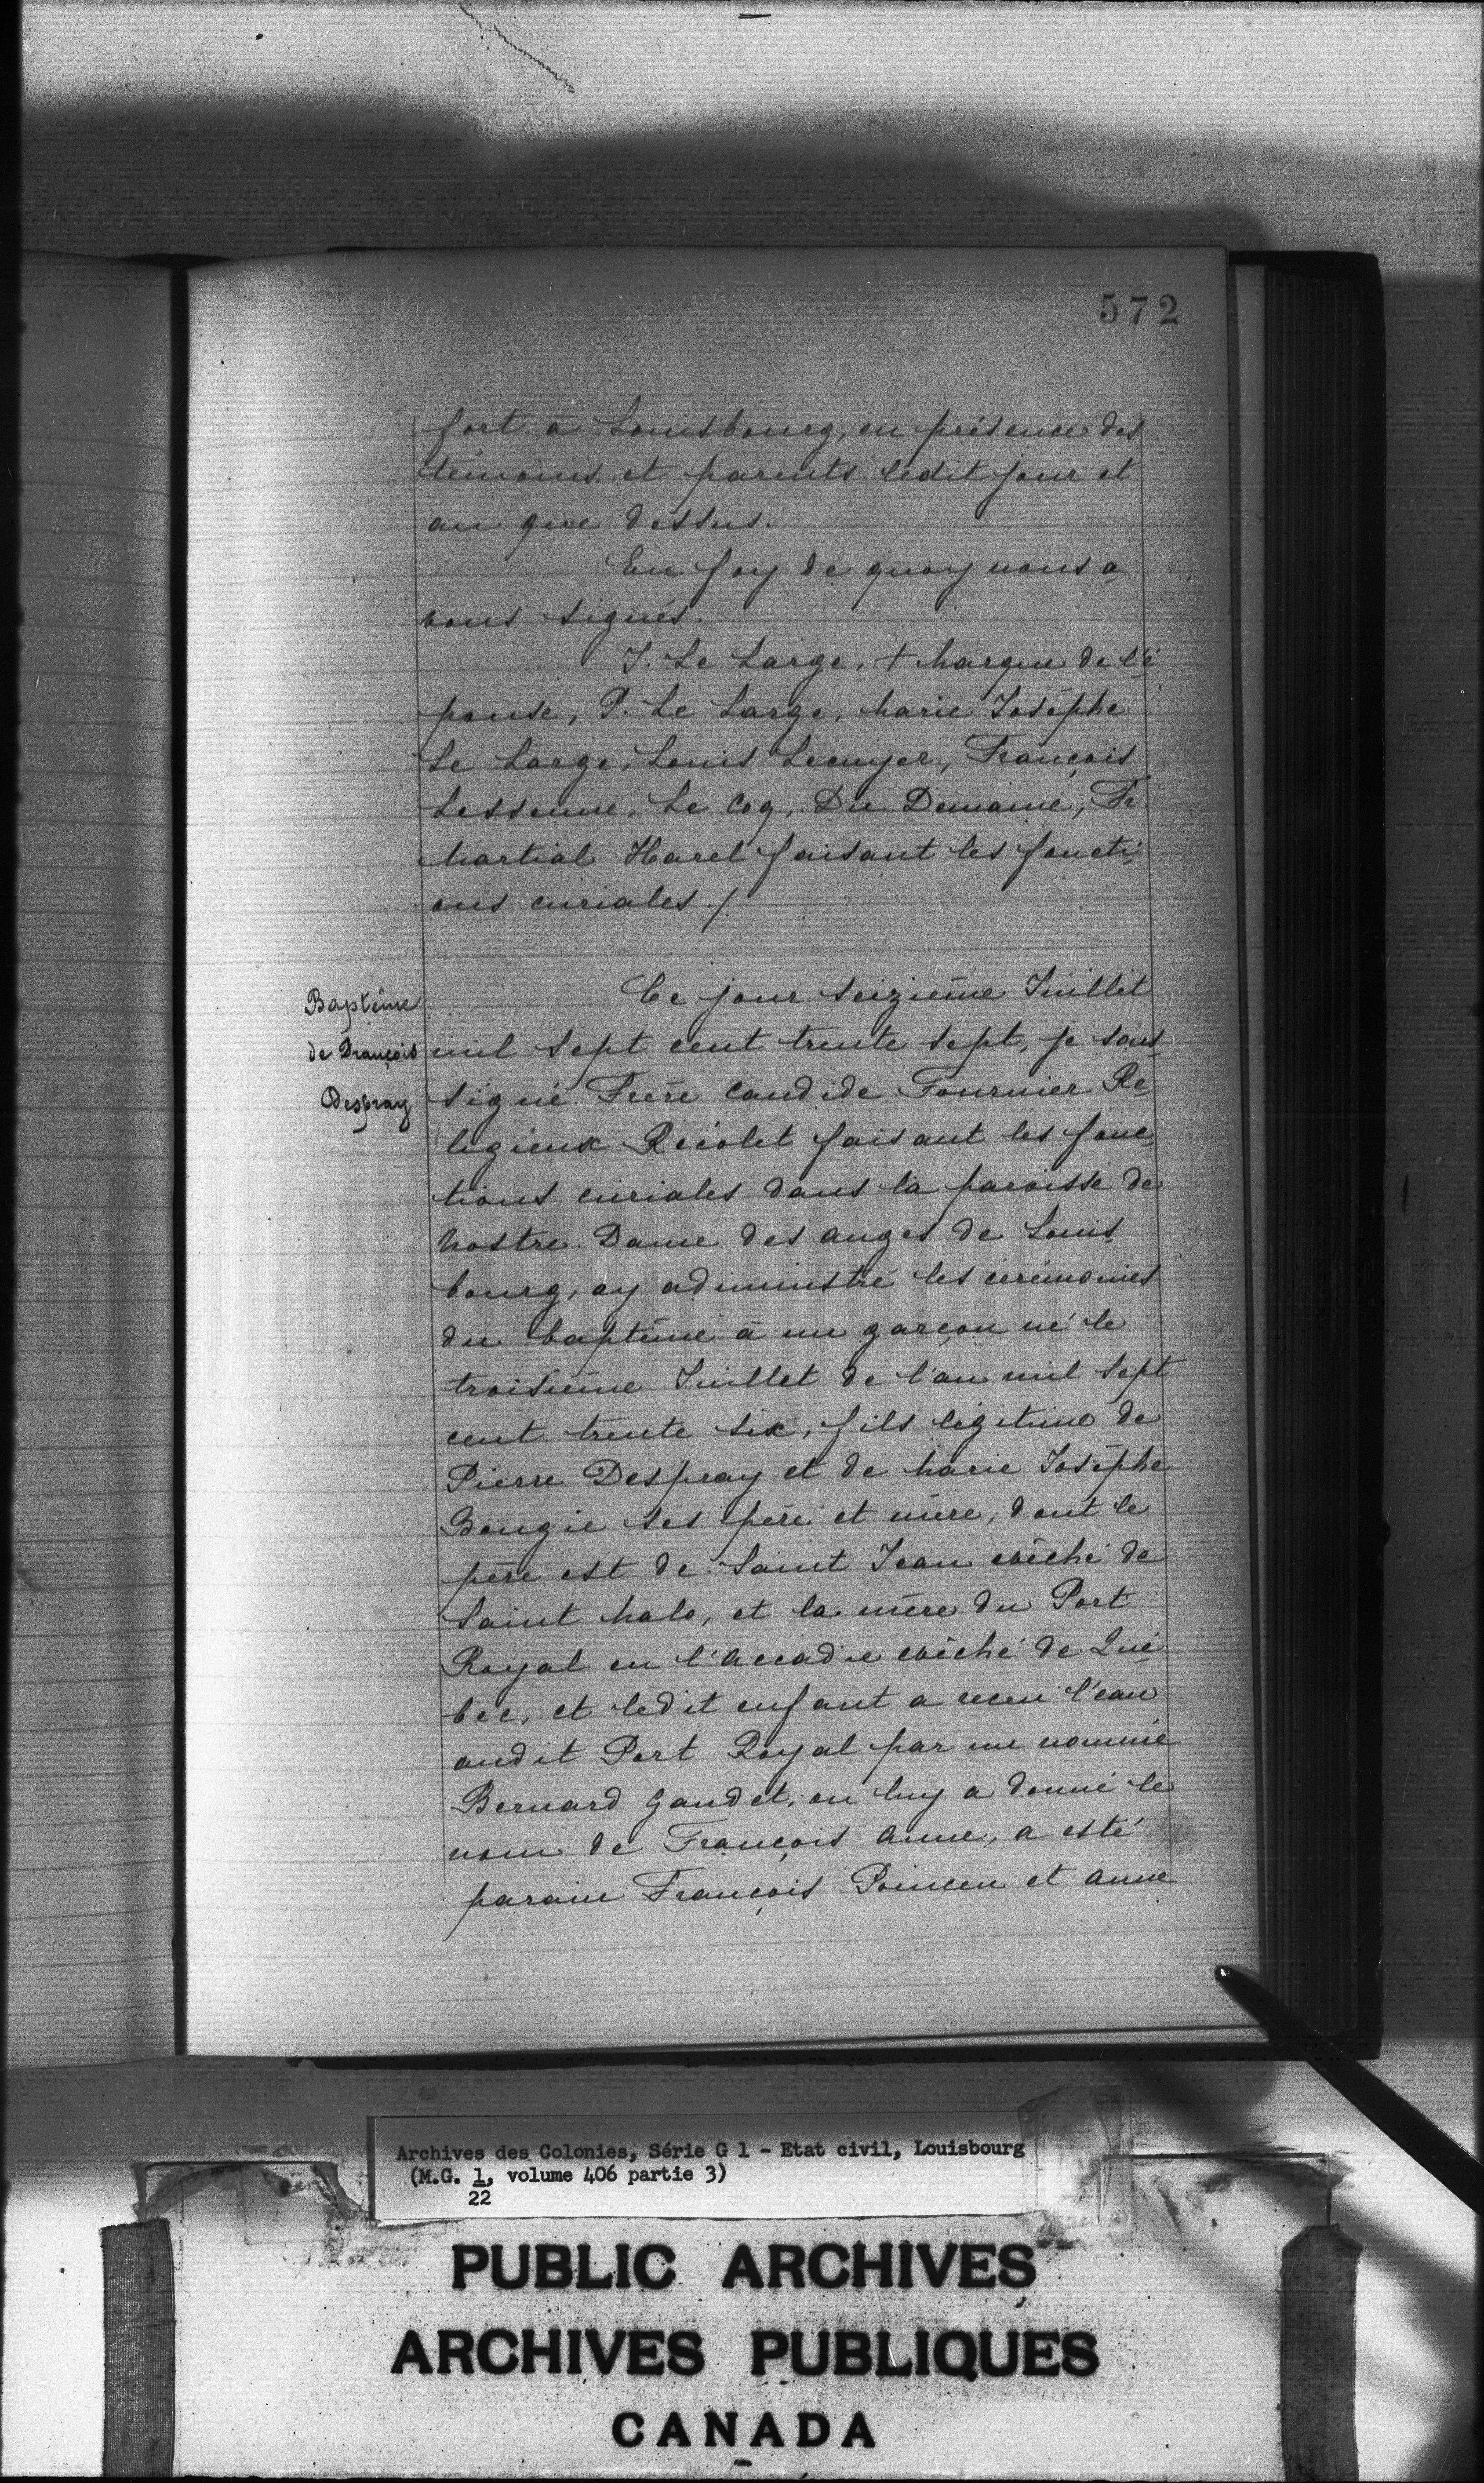 572
fort à Louisbourg, en présence des
témoins et parents ledit jour et
an que dessus.
En foy de quoy nous a
vons signés.
J. Le Large, + Marque de l'é
pouse, P. Le Large, Marie Josèphe
Le Large, Louis Lecuyer, François
Lessenne, Le Coq, Du Demaine, Fr.
Martial Harel faisant les foncti-
ons curiales ./.
Baptême
de François
Despray
Ce jour seizième Juillet
mil sept cent trente sept, je sous-
signé Frère Candide Fournier Re-
ligieux Récolet faisant les fonc-
tions curiales dans la paroisse de
Nostre Dame des anges de Louis-
bourg, ay administré les cérémonies
du baptême à un garçon né le
troisième Juillet de l'an mil sept
cent trente six, fils légitime de
Pierre Despray et de Marie Josèphe
Bougie ses père et mère, dont le
père est de Saint Jean evêché de
Saint Malo, et la mère du Port
Royal en l'Accadie evêché de Qué
bec, et ledit enfant a receu l'eau
audit Port Royal par un nommé
Bernard Gaudet, on luy a donné le
nom de François Anne, a esté
parain François Poinceu et Anne
Archives des Colonies, Série G 1 - Etat civil, Louisbourg
(M.G. 1, volume 406 partie 3)
22
PUBLIC ARCHIVES
ARCHIVES PUBLIQUES
CANADA